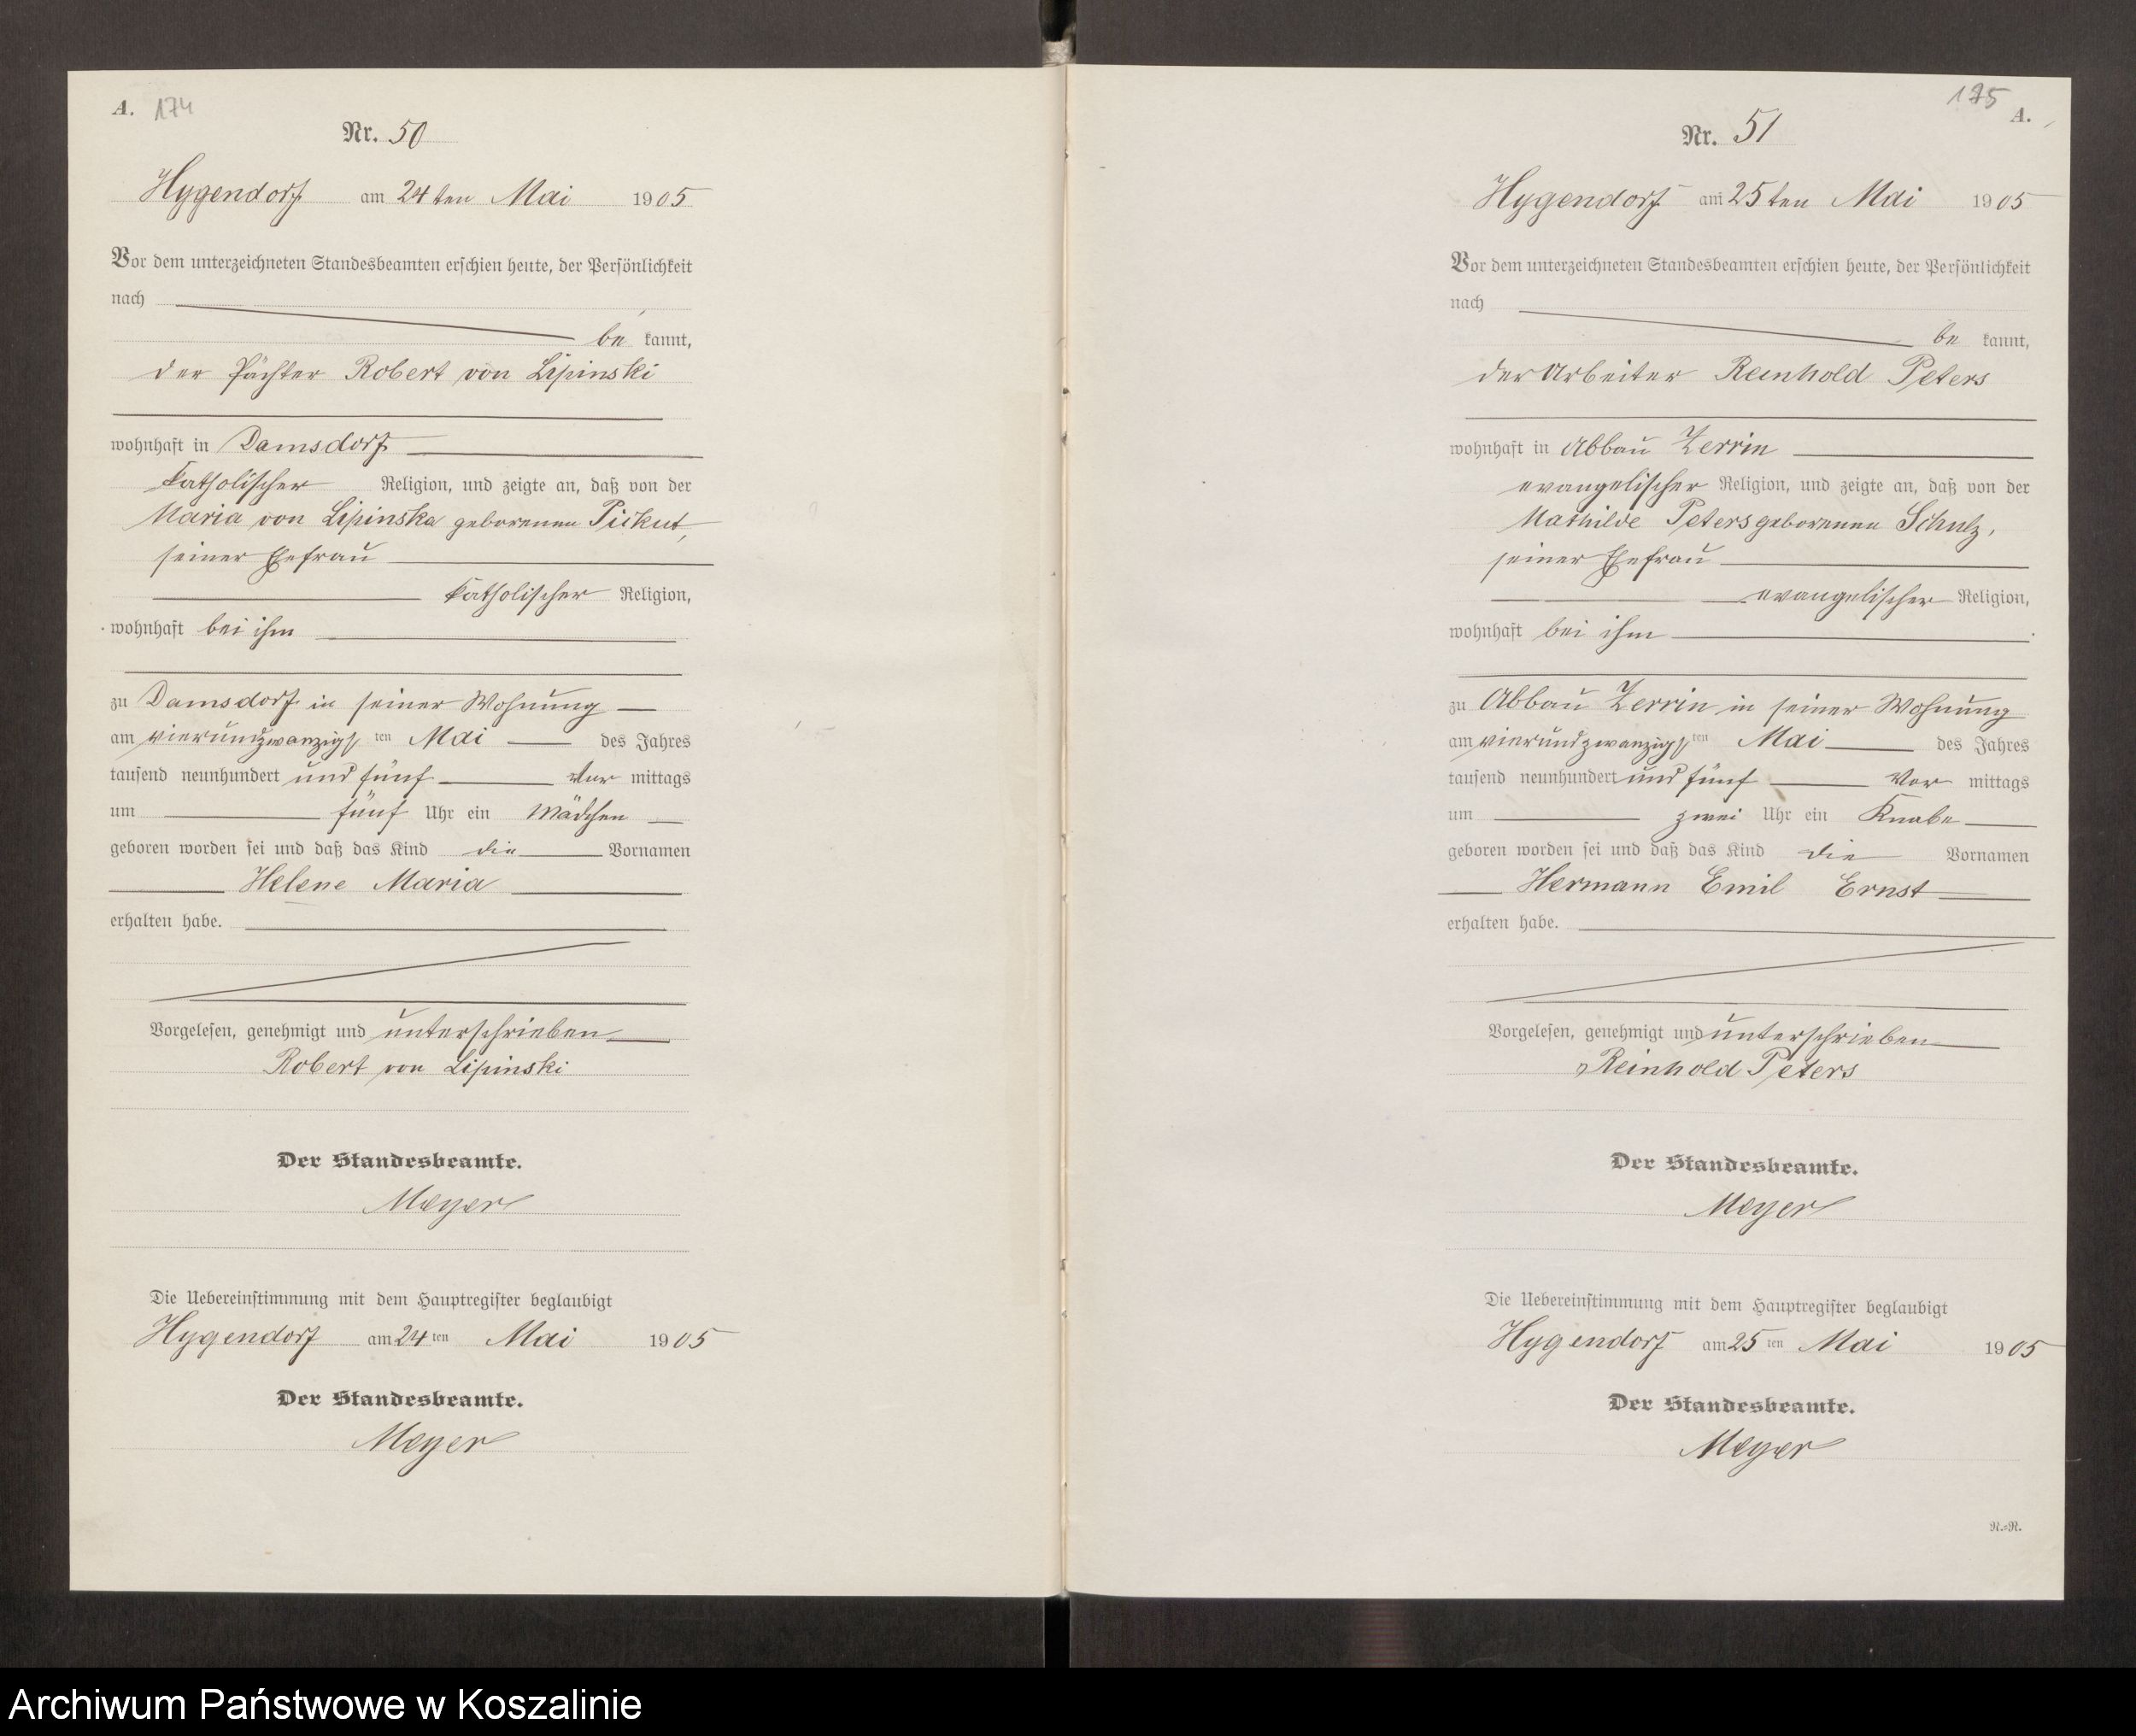 A. 174
Nr. 50
Hygendorf am 24ten Mai 1905
Vor dem unterzeichneten Standesbeamten erschien heute, der Persönlichkeit
nach
be kannt,
der Pächter Robert von Lipinski
wohnhaft in Damsdorf
katholischer Religion, und zeigte an, daß von der
Maria von Lipinska geborenen
seiner Ehefrau
katholischer Religion,
wohnhaft bei ihm
zu Damsdorf in seiner Wohnung
am vierundzwanzigsten Mai des Jahres
tausend neunhundert und fünf Vor mittags
um fünf Uhr ein Mädchen
geboren worden sei und daß das Kind die Vornamen
Helene Maria
erhalten habe.
Vorgelesen, genehmigt und unterschrieben
Robert von Lipinski
Der Standesbeamte.
Meyer
Die Uebereinstimmung mit dem Hauptregister beglaubigt
Hygendorf am 24ten Mai 1905
Der Standesbeamte.
Meyer
175 A.
Nr. 51
Hygendorf am 25ten Mai 1905
Vor dem unterzeichneten Standesbeamten erschien heute, der Persönlichkeit
nach
be kannt,
der Arbeiter Reinhold Peters
wohnhaft in Abbau Zerrin
evangelischer Religion, und zeigte an, daß von der
Mathilde Peters geborenen Schulz,
seiner Ehefrau
evangelischer Religion,
wohnhaft bei ihm
zu Abbau Zerrin in seiner Wohnung
am vierundzwanzigsten Mai des Jahres
tausend neunhundert und fünf Vor mittags
um zwei Uhr ein Knabe
geboren worden sei und daß das Kind die Vornamen
Hermann Emil Ernst
erhalten habe.
Vorgelesen, genehmigt und unterschrieben
Reinhold Peters
Der Standesbeamte.
Meyer
Die Uebereinstimmung mit dem Hauptregister beglaubigt
Hygendorf am 25ten Mai 1905
Der Standesbeamte.
Meyer
N.-R.
Archiwum Państwowe w Koszalinie